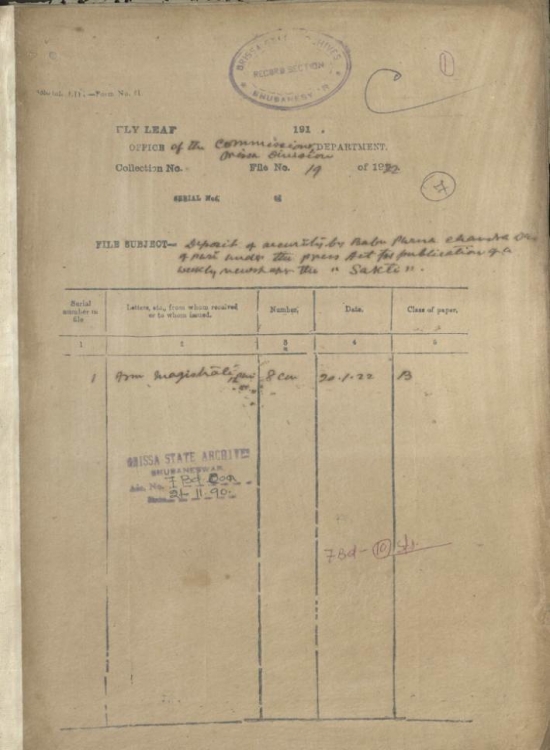 ORISSA STATE ARCHIVES
RECORD SECTION
BHUBANESWAR
1
Form No. 11
FLY LEAF 191 .
OFFICE of the Commissioner DEPARTMENT.
Orissa Division
Collection No. File No. 19 of 1922
SERIAL Nos.
FILE SUBJECT— Deposit of security by Babu Purna Chandra
of Puri under the press Act for publication of a
weekly newspaper the "Sakti".
Serial number in file
Letters, etc., from whom received or to whom issued.
Number.
Date.
Class of paper.
1 2 3 4 5
1 From Magistrate Puri 8 Con 20.1.22 B
ORISSA STATE ARCHIVES
BHUBANESWAR
Acc. No. 7 Bd. Don
Date 21.11.90.
7 Bd - 10